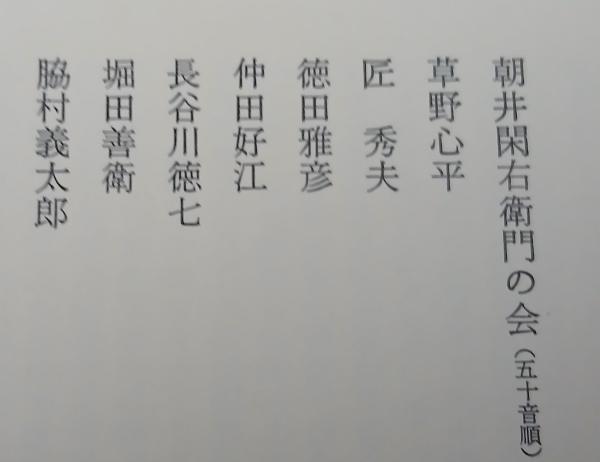 朝井閑右衛門の会（五十音順）
草野心平
匠　秀夫
徳田雅彦
仲田好江
長谷川徳七
堀田善衛
脇村義太郎